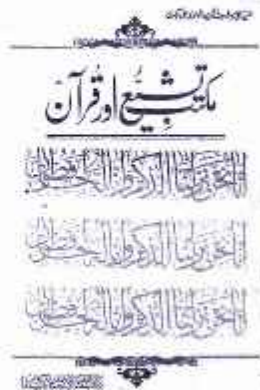 مکتب تشیع اور قرآن
انا نحن نزلنا الذکر وانا لہ لحافظون
انا نحن نزلنا الذکر وانا لہ لحافظون
انا نحن نزلنا الذکر وانا لہ لحافظون